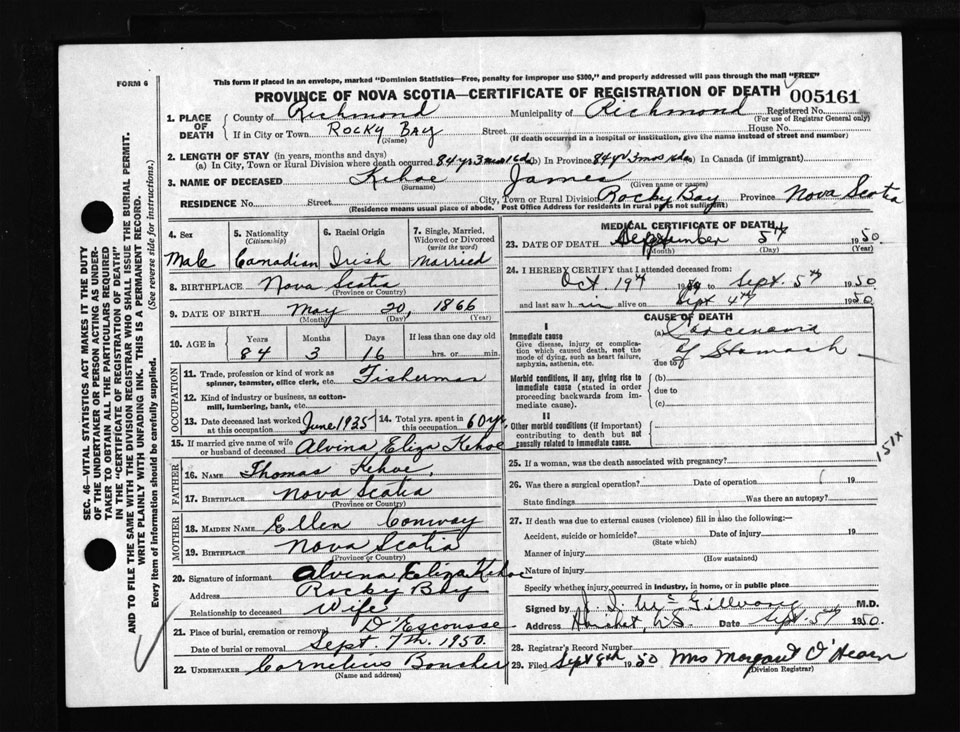 FORM 6
This form if placed in an envelope, marked "Dominion Statistics—Free, penalty for improper use $300," and properly addressed will pass through the mail "FREE"
PROVINCE OF NOVA SCOTIA—CERTIFICATE OF REGISTRATION OF DEATH
005161
1. PLACE OF DEATH
County of Richmond Municipality of Richmond Registered No.
(For use of Registrar General only)
If in City or Town Rocky Bay Street House No.
(Name) (If death occurred in a hospital or institution, give the name instead of street and number)
2. LENGTH OF STAY (in years, months and days)
(a) In City, Town or Rural Division where death occurred 84 yr 3 mos 16 da (b) In Province 84 yr 3 mos 16 da (c) In Canada (if immigrant)
3. NAME OF DECEASED Kehoe James
(Surname) (Given name or names)
RESIDENCE No. Street City, Town or Rural Division Rocky Bay Province Nova Scotia
(Residence means usual place of abode. Post Office Address for residents in rural parts not sufficient)
4. Sex Male
5. Nationality (Citizenship) Canadian
6. Racial Origin Irish
7. Single, Married, Widowed or Divorced (write the word) Married
8. BIRTHPLACE Nova Scotia
(Province or Country)
9. DATE OF BIRTH May 20, 1866
(Month) (Day) (Year)
10. AGE Years Months Days If less than one day old
84 3 16 hrs. or min.
OCCUPATION
11. Trade, profession or kind of work as spinner, teamster, office clerk, etc. Fisherman
12. Kind of industry or business, as cotton-mill, lumbering, bank, etc.
13. Date deceased last worked at this occupation June 1925
14. Total yrs. spent in this occupation 60 yrs
15. If married give name of wife or husband of deceased Alvina Eliza Kehoe
FATHER
16. NAME Thomas Kehoe,
17. BIRTHPLACE Nova Scotia
(Province or Country)
MOTHER
18. MAIDEN NAME Ellen Conway
19. BIRTHPLACE Nova Scotia
(Province or Country)
20. Signature of informant Alvina Eliza Kehoe
Address Rocky Bay
Relationship to deceased Wife
21. Place of burial, cremation or removal D'Escousse
Date of burial or removal Sept. 7th. 1950.
22. UNDERTAKER Cornelius Boucher
(Name and address)
MEDICAL CERTIFICATE OF DEATH
23. DATE OF DEATH September 5th 1950.
(Month) (Day) (Year)
24. I HEREBY CERTIFY that I attended deceased from
Oct. 19th 19 to Sept. 5th 1950
and last saw him alive on Sept. 4th 1950
CAUSE OF DEATH
I
Immediate cause
Give disease, injury or complication which caused death, not the mode of dying, such as heart failure, asphyxia, asthenia, etc.
(a) Carcinoma
of Stomach
due to
Morbid conditions, if any, giving rise to immediate cause (stated in order proceeding backwards from immediate cause).
(b)
due to
(c)
II
Other morbid conditions (if important) contributing to death but not causally related to immediate cause.
151X
25. If a woman, was the death associated with pregnancy?
26. Was there a surgical operation? Date of operation 19
State findings Was there an autopsy?
27. If death was due to external causes (violence) fill in also the following:—
Accident, suicide or homicide? Date of injury 19
(State which)
Manner of injury
(How sustained)
Nature of injury
Specify whether injury occurred in industry, in home, or in public place
Signed by M.D.
Address Arichat, N.S. Date Sept. 5th 1950.
28. Registrar's Record Number
29. Filed Sept 8th 1950 Mrs Margaret O'Hearn
(Division Registrar)
SEC. 46—VITAL STATISTICS ACT MAKES IT THE DUTY
OF THE UNDERTAKER OR PERSON ACTING AS UNDERTAKER TO OBTAIN ALL THE PARTICULARS REQUIRED
IN THE "CERTIFICATE OF REGISTRATION OF DEATH"
AND TO FILE THE SAME WITH THE DIVISION REGISTRAR WHO SHALL ISSUE THE BURIAL PERMIT.
WRITE PLAINLY WITH UNFADING INK. THIS IS A PERMANENT RECORD.
Every item of information should be carefully supplied. (See reverse side for instructions.)